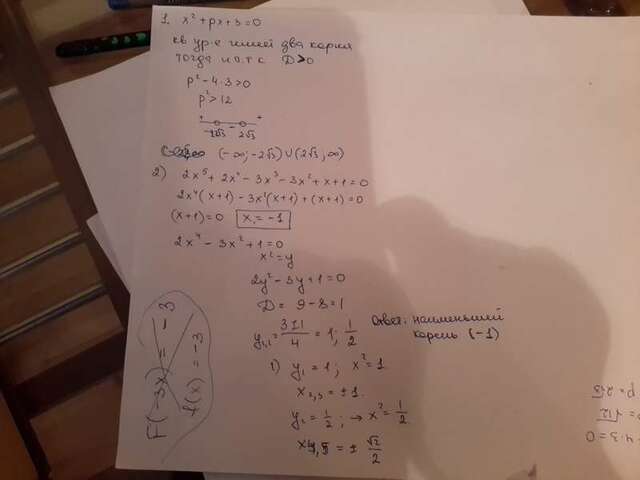 1. x² + px + 3 = 0
кв ур-е имеет два корня
тогда и т.т.к D > 0
p² - 4·3 > 0
p² > 12
+ - +
-2√3 2√3
(-∞; -2√3) ∪ (2√3; ∞)
2) 2x⁵ + 2x⁴ - 3x³ - 3x² + x + 1 = 0
2x⁴(x+1) - 3x²(x+1) + (x+1) = 0
(x+1) = 0 x₁ = -1
2x⁴ - 3x² + 1 = 0
x² = y
2y² - 3y + 1 = 0
D = 9 - 8 = 1
y₁,₂ = 3±1/4 = 1; 1/2
Ответ: наименьший
корень (-1)
1) y₁ = 1; x² = 1
x₂,₃ = ±1
y₂ = 1/2; → x² = 1/2
x₄,₅ = ± √2/2
F(-3x) = -3
f(x) = -3